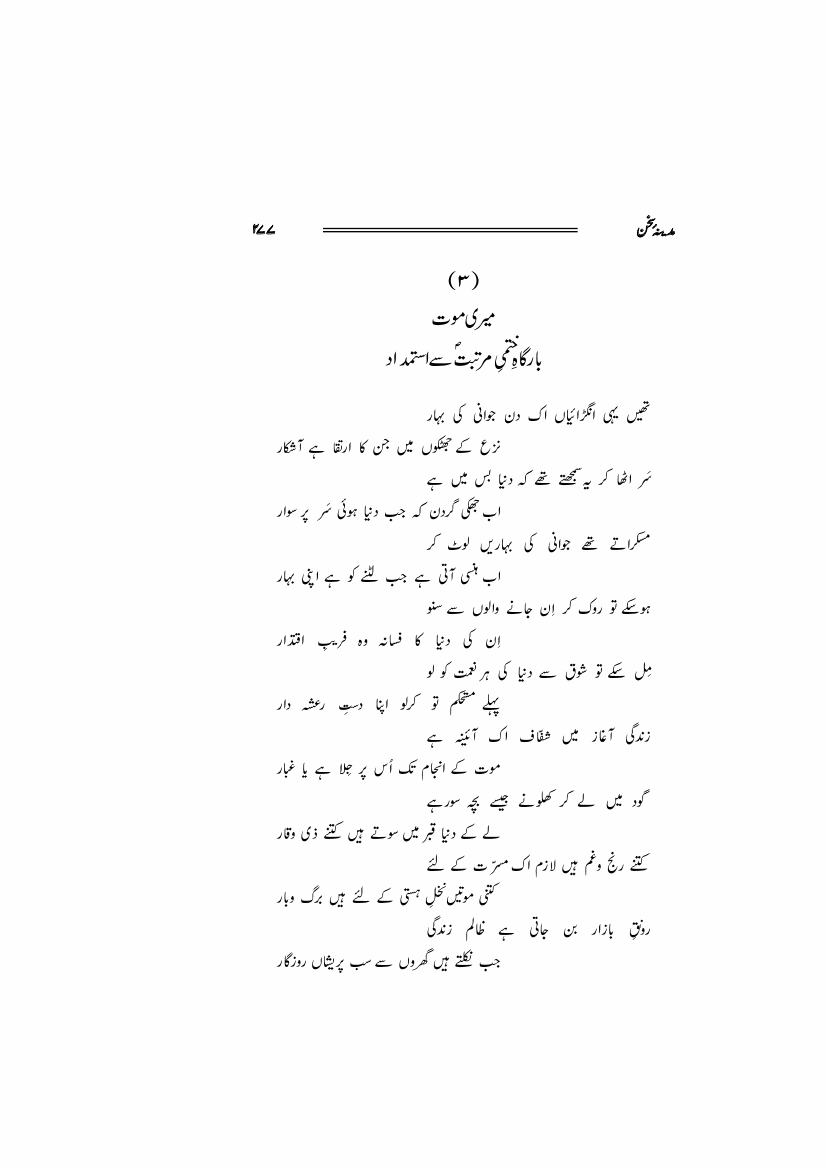 مدینۂ سخن ۲۷۷
(۳)
میری موت
بارگاہِ ختمیِ مرتبتؐ سے استمداد
تھیں یہی انگڑائیاں اک دن جوانی کی بہار
نزع کے جھٹکوں میں جن کا ارتقا ہے آشکار
سَر اٹھا کر یہ سمجھتے تھے کہ دنیا بس میں ہے
اب جھکی گردن کہ جب دنیا ہوئی سَر پر سوار
مسکراتے تھے جوانی کی بہاریں لوٹ کر
اب ہنسی آتی ہے جب لٹنے کو ہے اپنی بہار
ہوسکے تو روک کر اِن جانے والوں سے سنو
اِن کی دنیا کا فسانہ وہ فریبِ اقتدار
مِل سکے تو شوق سے دنیا کی ہر نعمت کو لو
پہلے مستحکم تو کرلو اپنا دستِ رعشہ دار
زندگی آغاز میں شفّاف اک آئینہ ہے
موت کے انجام تک اُس پر جِلا ہے یا غبار
گود میں لے کر کھلونے جیسے بچہ سورہے
لے کے دنیا قبر میں سوتے ہیں کتنے ذی وقار
کتنے رنج وغم ہیں لازم اک مسرّت کے لئے
کتنی موتیں نخلِ ہستی کے لئے ہیں برگ وبار
رونقِ بازار بن جاتی ہے ظالم زندگی
جب نکلتے ہیں گھروں سے سب پریشاں روزگار